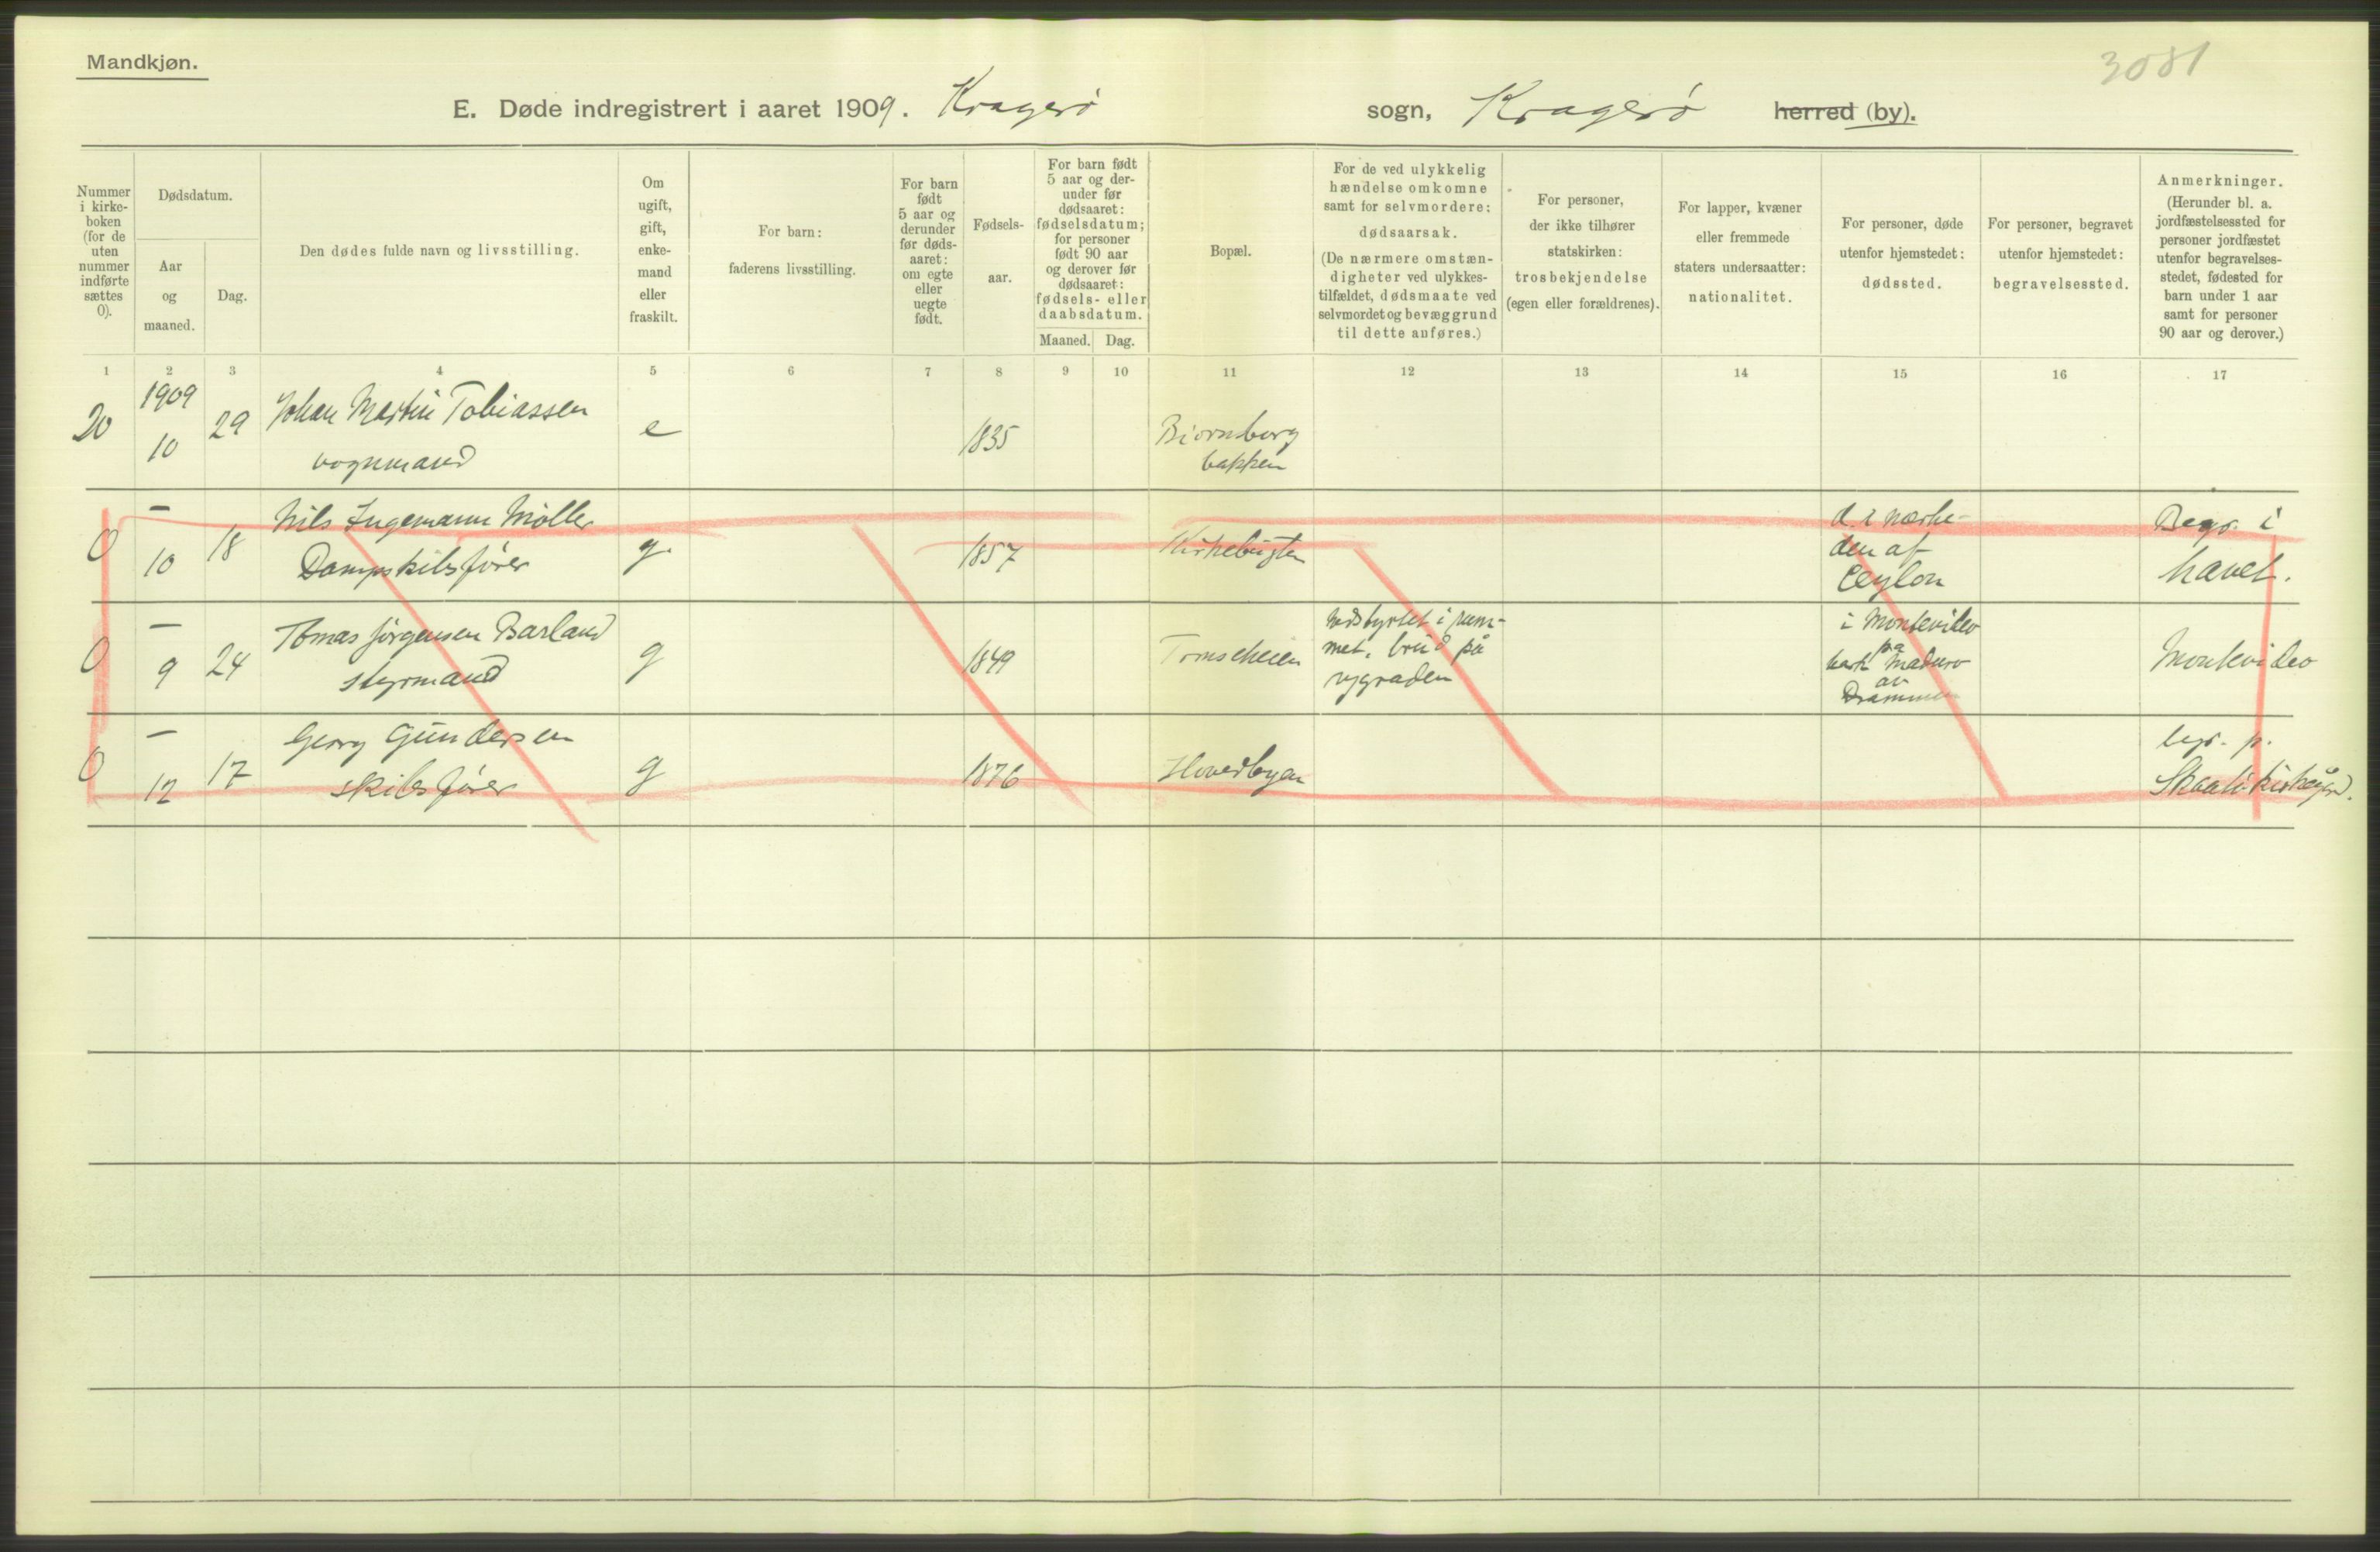 Mandkjøn.
3081
E. Døde indregistrert i aaret 1909. Kragerø sogn, Kragerø herred (by).
Nummer i kirke-boken (for de uten nummer indførte sættes 0).
Dødsdatum.
Aar og maaned.
Dag.
Den dødes fulde navn og livsstilling.
Om ugift, gift, enke-mand eller fraskilt.
For barn: faderens livsstilling.
For barn født 5 aar og derunder før døds-aaret: om egte eller uegte født.
Fødsels-aar.
For barn født 5 aar og der-under før dødsaaret: fødselsdatum; for personer født 90 aar og derover før dødsaaret: fødsels- eller daabsdatum.
Maaned. Dag.
Bopæl.
For de ved ulykkelig hændelse omkomne samt for selvmordere: dødsaarsak. (De nærmere omstæn-digheter ved ulykkes-tilfældet, dødsmaate ved selvmordet og bevæggrund til dette anføres.)
For personer, der ikke tilhører statskirken: trosbekjendelse (egen eller forældrenes).
For lapper, kvæner eller fremmede staters undersaatter: nationalitet.
For personer, døde utenfor hjemstedet: dødssted.
For personer, begravet utenfor hjemstedet: begravelsessted.
Anmerkninger. (Herunder bl. a. jordfæstelsessted for personer jordfæstet utenfor begravelses-stedet, fødested for barn under 1 aar samt for personer 90 aar og derover.)
1 2 3 4 5 6 7 8 9 10 11 12 13 14 15 16 17
20 1909 10 29 Johan Martin Tobiassen
vognmand e 1835 Biornborg
bakken
0 — 10 18 Nils Ingemann Møller
Dampskibsfører g. 1857 Kirkebugten d. i nærhe-
den af
Ceylon
Begr. i
havet.
0 — 9 24 Tomas Jørgensen Barland
styrmand g 1849 Tomseheien nedstyrtet i rum-
met, brud på
rygraden
i Montevideo
på
bark Maduro
av
Drammen
Montevideo
0 — 12 17 Georg Gundersen
skibsfører g 1876 Hovedbyen
begr. p.
Skaatø kirkegrd.